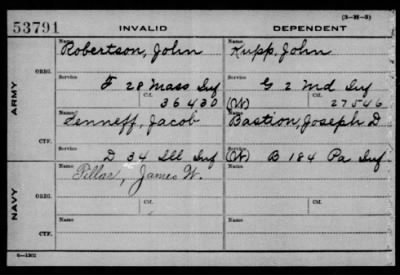 (3-H-5)
53791 INVALID DEPENDENT
ARMY
ORIG.
Name Name
Robertson, John Rupp, John
Service Service
F 28 Mass Inf G 2 Md Inf
Ctf. Ctf.
36430 (W) 27546
CTF.
Name Name
Jacob Bastion, Joseph D
Service Service
D 34 Ill Inf (W) B 184 Pa Inf.
NAVY
ORIG.
Name Name
Pillar, James W.
Service Service
Ctf. Ctf.
CTF.
Name Name
6-1302